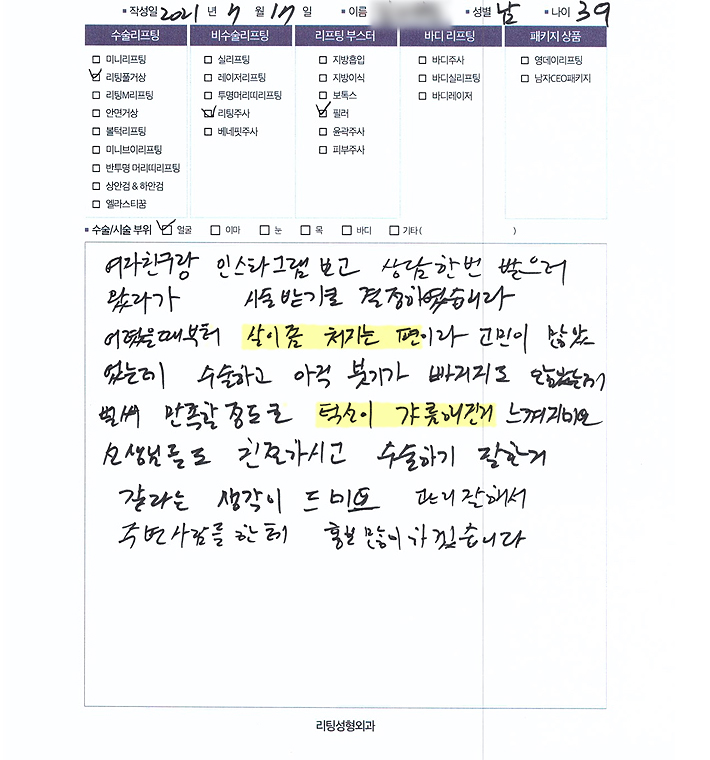 작성일 2021 년 7 월 17 일 이름 성별 남 나이 39
수술리프팅 비수술리프팅 리프팅 부스터 바디 리프팅 패키지 상품
미니리프팅 실리프팅 지방흡입 바디주사 영데이리프팅
리팅풀거상 레이저리프팅 지방이식 바디실리프팅 남자CEO패키지
리팅M리프팅 투명머리띠리프팅 보톡스 바디레이저
안면거상 리팅주사 필러
볼턱리프팅 베네핏주사 윤곽주사
미니브이리프팅 피부주사
반투명 머리띠리프팅
상안검 & 하안검
엘라스티꿈
수술/시술 부위 얼굴 이마 눈 목 바디 기타( )
여자친구랑 인스타그램 보고 상담한번 받으러
왔다가 시술받기로 결정하였습니다
어렸을때부터 살이좀 처지는 편이라 고민이 많았
었는데 수술하고 아직 붓기가 빠지지도 않았는데
벌써 만족할정도로 턱선이 갸름해진게 느껴지네요
선생님들도 친절하시고 수술하기 잘한거
같다는 생각이 드네요 관리잘해서
주변사람들한테 홍보 많이 하겠습니다
리팅성형외과